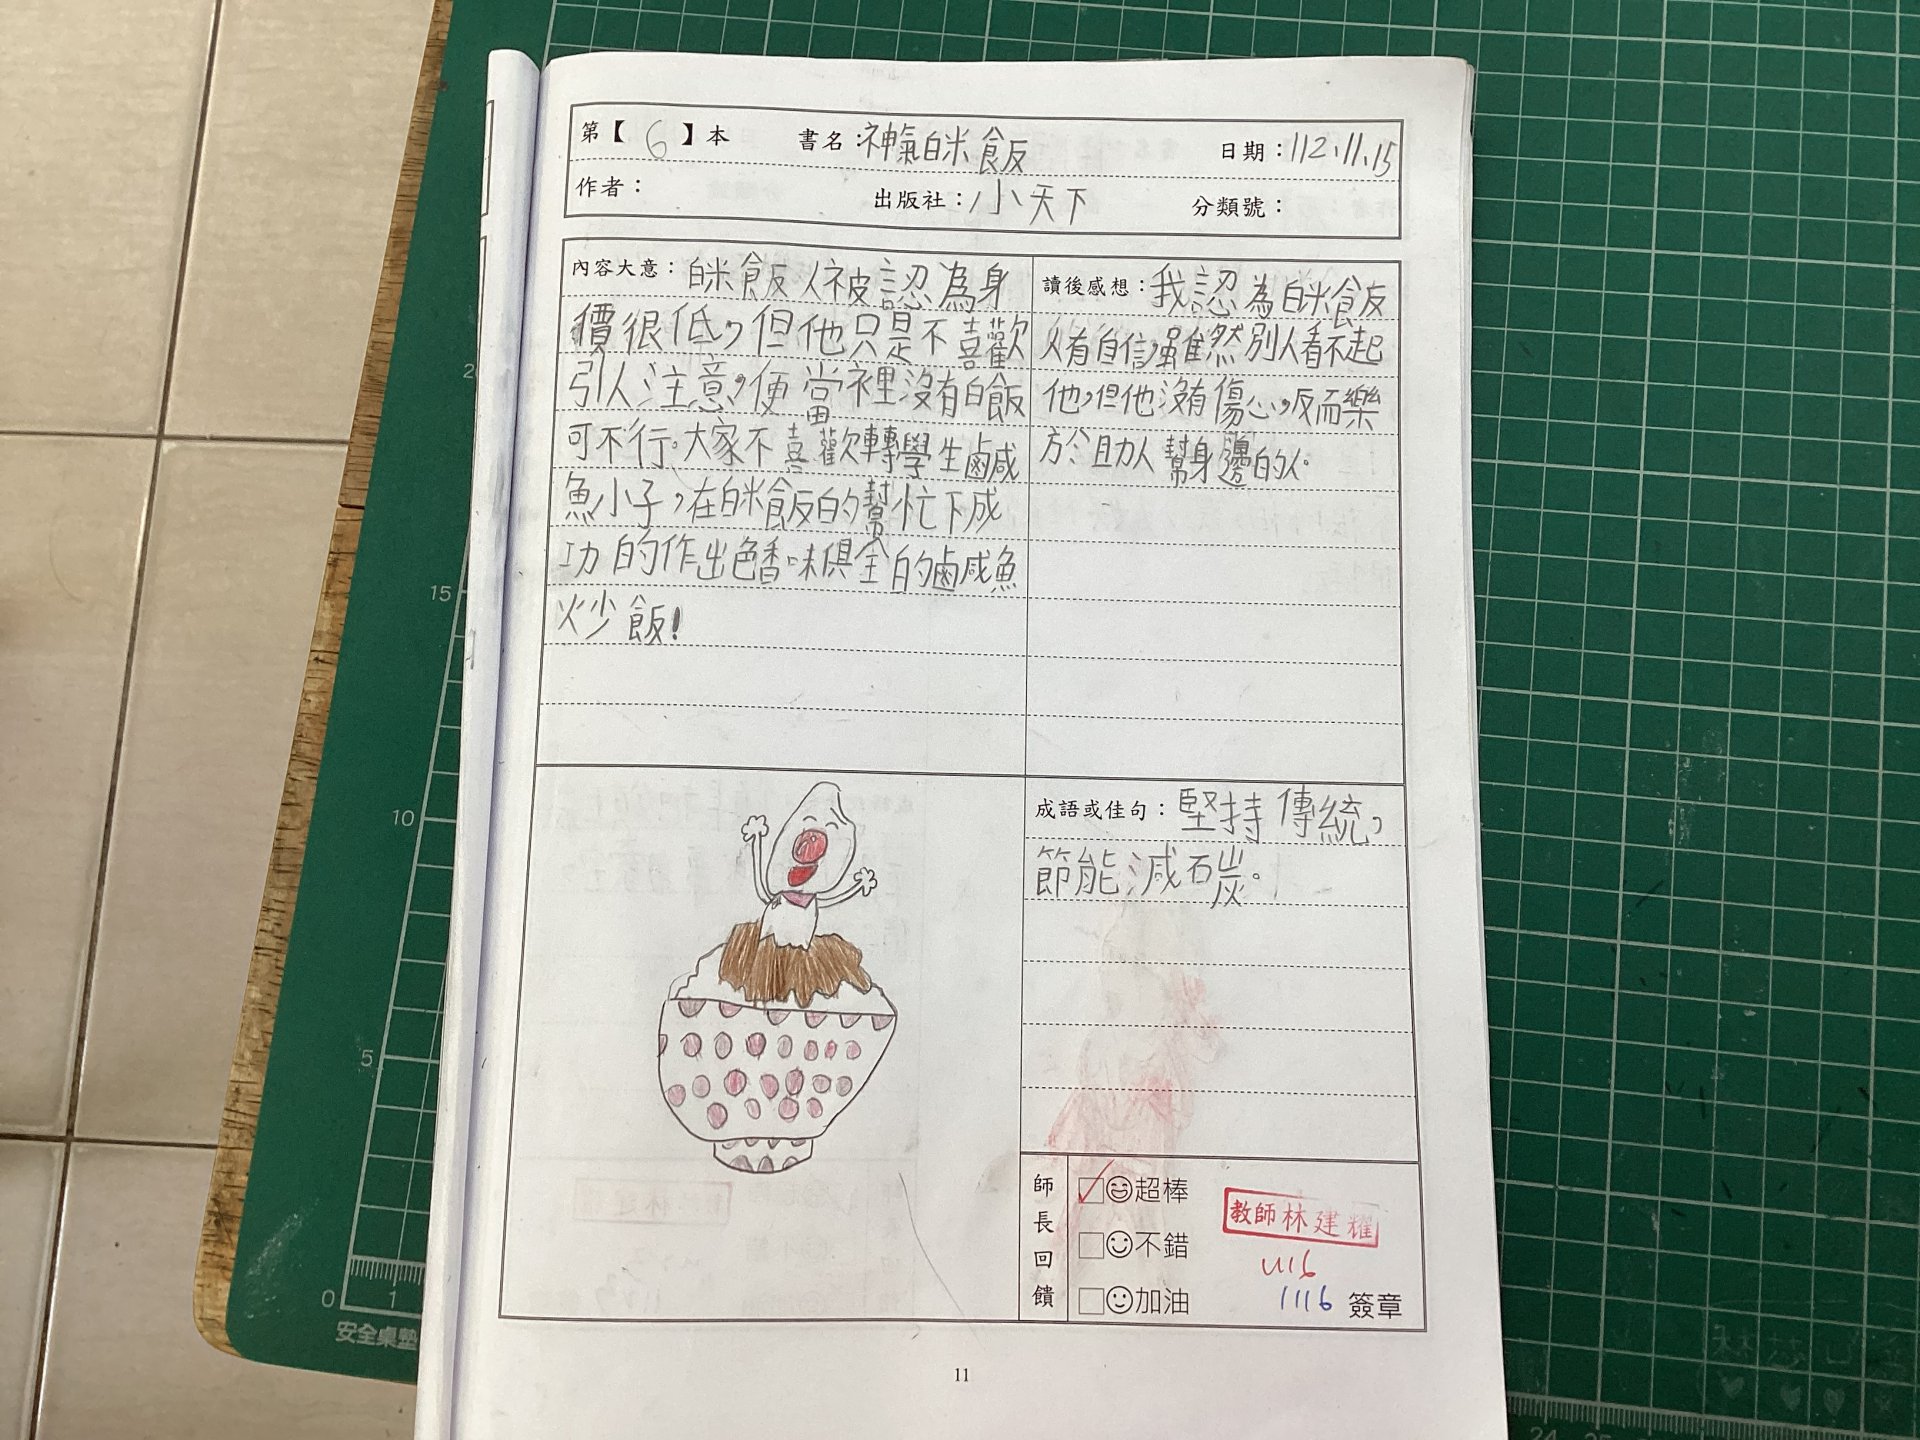 第【 6 】本 書名：神氣白米飯 日期：112.11.15
作者： 出版社：小天下 分類號：
內容大意：白米飯人被認為身
價很低，但他只是不喜歡
引人注意，便當裡沒有白飯
可不行。大家不喜歡轉學生鹵咸
魚小子，在白米飯的幫忙下成
功的作出色香味俱全的鹵咸魚
炒飯！
讀後感想：我認為白米飯
人有自信，雖然別人看不起
他，但他沒有傷心，反而樂
於助人幫身邊的人。
成語或佳句：堅持傳統，
節能減石炭。
師長回饋
超棒
不錯
加油
教師林建耀
1116
1116 簽章
11
20
15
10
5
0 1
安全桌墊
24 25